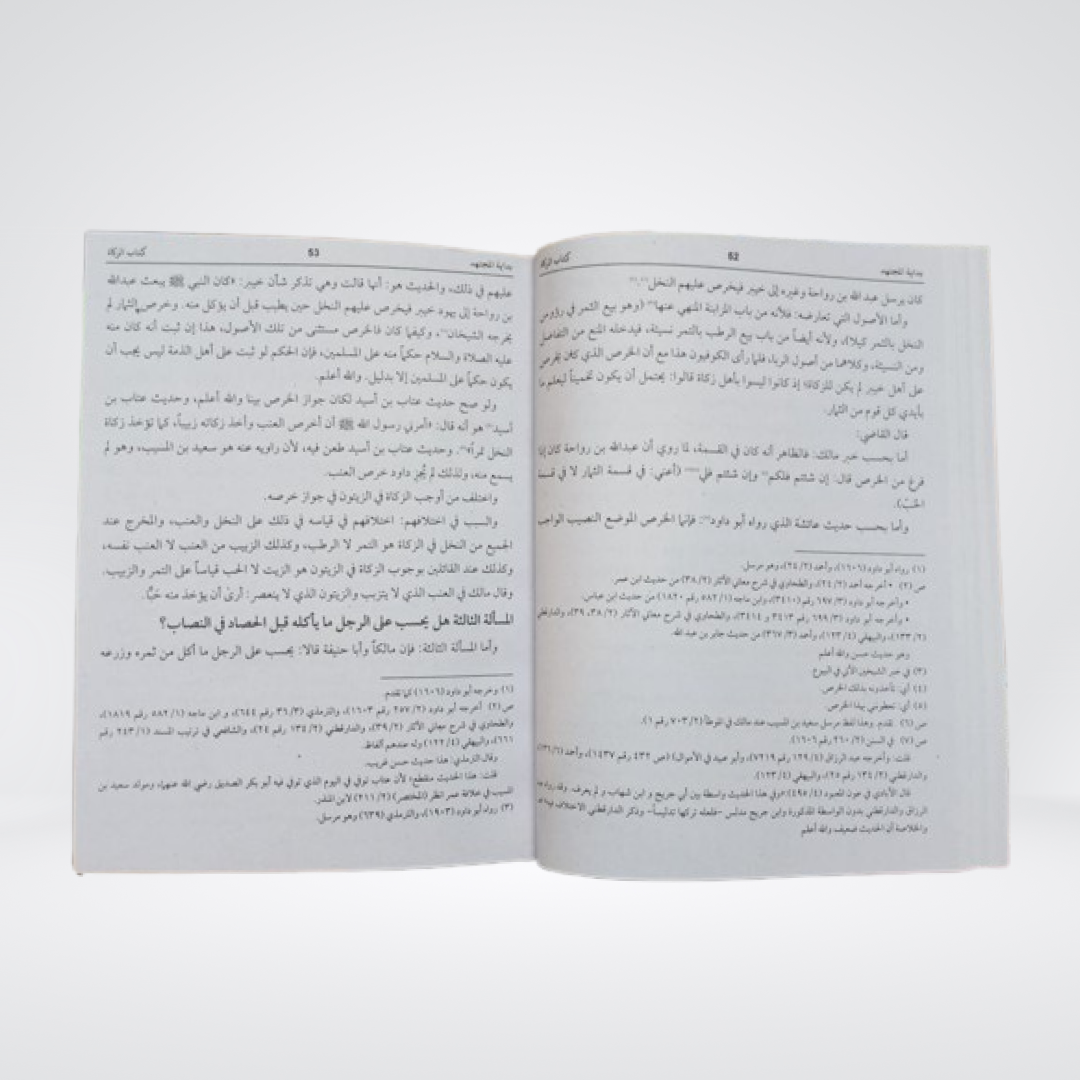 بداية المجتهد
52
كتاب الزكاة
كان يرسل عبد الله بن رواحة وغيره إلى خيبر فيخرص عليهم النخل
وأما الأصول التي تعارضه: فلأنه من باب المزابنة المنهي عنها (وهو بيع الثمر في رؤوس
النخل بالثمر كيلا)، ولأنه أيضاً من باب بيع الرطب بالتمر نسيئة، فيدخله المنع من التفاضل
ومن النسيئة، وكلاهما من أصول الربا، فلما رأى الكوفيون هذا مع أن الخرص الذي كان يخرص
على أهل خيبر لم يكن للزكاة؛ إذ كانوا ليسوا بأهل زكاة قالوا: يحتمل أن يكون تخميناً ليعلم ما
بأيدي كل قوم من الثمار.
قال القاضي:
أما بحسب خبر مالك: فالظاهر أنه كان في القسمة، لما روي أن عبدالله بن رواحة كان إذا
فرغ من الخرص قال: إن شئتم فلكم وإن شئتم فلي (أعني: في قسمة الثمار لا في قسمة
الحب).
وأما بحسب حديث عائشة الذي رواه أبو داود: فإنما الخرص الموضع النصيب الواجب
(١) رواه أبو داود (١٦٠٦)، وأحمد (٢/ ٢٤)، وهو مرسل.
ص (٢) • أخرجه أحمد (٢/ ٢٤)، والطحاوي في شرح معاني الآثار (٢/ ٣٨) من حديث ابن عمر.
• وأخرجه أبو داود (٣/ ٦٩٧ رقم ٣٤١٠)، وابن ماجه (١/ ٥٨٢ رقم ١٨٢٠) من حديث ابن عباس.
• وأخرجه أبو داود (٣/ ٦٩٩ رقم ٣٤١٣ و ٣٤١٤)، والطحاوي في شرح معاني الآثار (٢/ ٣٨، ٣٩)، والدارقطني
(٢/ ١٣٣)، والبيهقي (٤/ ١٢٣)، وأحمد (٣/ ٣٦٧) من حديث جابر بن عبد الله.
وهو حديث حسن والله أعلم
(٣) في خبر الشيخين الآتي في البيوع
(٤) أي: تأخذونه بذلك الخرص.
(٥) أي: تعطوني بهذا الخرص.
ص (٦) تقدم. وهذا لفظ مرسل سعيد بن المسيب عند مالك في الموطأ (٢/ ٧٠٣ رقم ١).
ص (٧) في السنن (٢/ ٢٦٠ رقم ١٦٠٦).
قلت: وأخرجه عبد الرزاق (٤/ ١٢٩ رقم ٧٢١٩)، وأبو عبيد في الأموال (ص ٤٣٢ رقم ١٤٣٧)، وأحمد
والدارقطني (٢/ ١٣٤ رقم ٢٥)، والبيهقي (٤/ ١٢٣).
قال الآبادي في عون المعبود (٤/ ٤٩٥): «وفي هذا الحديث واسطة بين أبي جريج و ابن شهاب و لم يعرف، وقد رواه
الرزاق والدارقطني بدون الواسطة المذكورة وابن جريج مدلس -فلعله تركها تدليساً- وذكر الدارقطني الاختلاف فيه
والخلاصة أن الحديث ضعيف والله أعلم
بداية المجتهد
53
كتاب الزكاة
عليهم في ذلك، والحديث هو: أنها قالت وهي تذكر شأن خيبر: «كان النبي ﷺ يبعث عبدالله
بن رواحة إلى يهود خيبر فيخرص عليهم النخل حين يطيب قبل أن يؤكل منه. وخرص الثمار لم
يخرجه الشيخان، وكيفما كان فالخرص مستثنى من تلك الأصول، هذا إن ثبت أنه كان منه
عليه الصلاة والسلام حكماً منه على المسلمين، فإن الحكم لو ثبت على أهل الذمة ليس يجب أن
يكون حكماً على المسلمين إلا بدليل. والله أعلم.
ولو صح حديث عتاب بن أسيد لكان جواز الخرص بينا والله أعلم، وحديث عتاب بن
أسيد هو أنه قال: «أمرني رسول الله ﷺ أن أخرص العنب وآخذ زكاته زبيباً، كما تؤخذ زكاة
النخل تمراً». وحديث عتاب بن أسيد طعن فيه، لأن راويه عنه هو سعيد بن المسيب، وهو لم
يسمع منه، ولذلك لم يُجِزْ داود خرص العنب.
واختلف من أوجب الزكاة في الزيتون في جواز خرصه.
والسبب في اختلافهم: اختلافهم في قياسه في ذلك على النخل والعنب، والمخرج عند
الجميع من النخل في الزكاة هو التمر لا الرطب، وكذلك الزبيب من العنب لا العنب نفسه،
وكذلك عند القائلين بوجوب الزكاة في الزيتون هو الزيت لا الحب قياساً على التمر والزبيب.
وقال مالك في العنب الذي لا يتزبب والزيتون الذي لا ينعصر: أرى أن يؤخذ منه حَبًّا.
المسألة الثالثة هل يحسب على الرجل ما يأكله قبل الحصاد في النصاب؟
وأما المسألة الثالثة: فإن مالكاً وأبا حنيفة قالا: يحسب على الرجل ما أكل من ثمره وزرعه
(١) وخرجه أبو داود (١٦٠٦) كما تقدم.
ص (٢) أخرجه أبو داود (٢/ ٢٥٧ رقم ١٦٠٣)، والترمذي (٣/ ٣٦ رقم ٦٤٤)، و ابن ماجه (١/ ٥٨٢ رقم ١٨١٩)،
والطحاوي في شرح معاني الآثار (٢/ ٣٩)، والدارقطني (٢/ ١٣٤ رقم ٢٤)، والشافعي في ترتيب المسند (١/ ٢٤٣ رقم
٦٦١)، والبيهقي (٤/ ١٢٢) وله عندهم ألفاظ.
وقال الترمذي: هذا حديث حسن غريب.
قلت: هذا الحديث منقطع؛ لأن عتاب توفي في اليوم الذي توفي فيه أبو بكر الصديق رضي الله عنهما، ومولد سعيد بن
المسيب في خلافة عمر انظر (المختصر) (٢/ ٢١١) لابن المنذر.
(٣) رواه أبو داود (١٩٠٣)، والترمذي (٦٣٩) وهو مرسل.